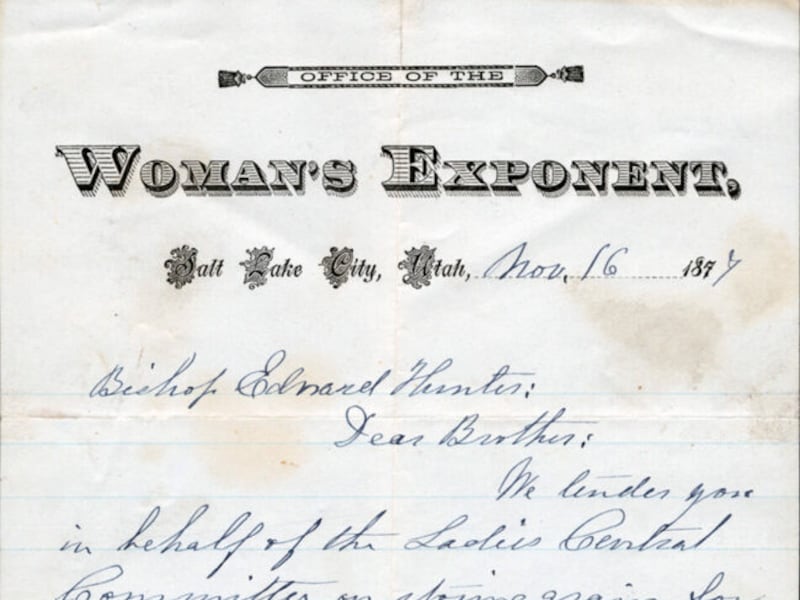 OFFICE OF THE
WOMAN'S EXPONENT,
Salt Lake City, Utah, Nov. 16 1877
Bishop Edward Hunter:
Dear Brother:
We tender you
in behalf of the Ladies Central
Committee on storing grain, for